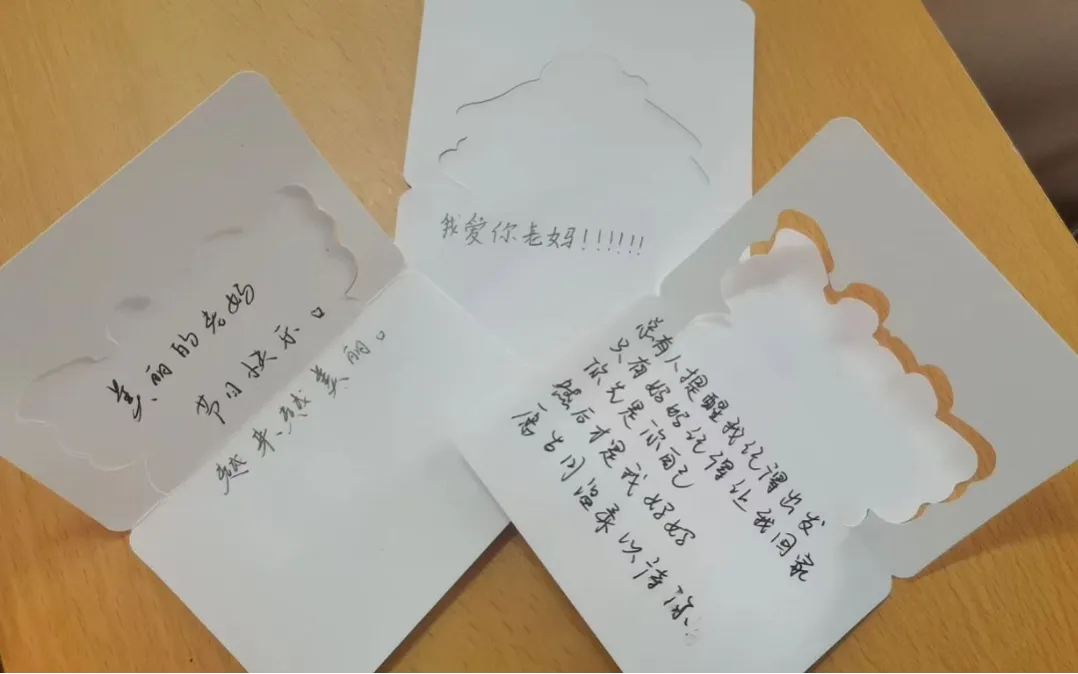 美丽的老妈
节日快乐。
越来越美丽。
我爱你老妈!!!!!!
总有人提醒我记得出发
只有妈妈记得让我回家
你先是你自己
然后才是我妈妈
愿时间温柔以待你